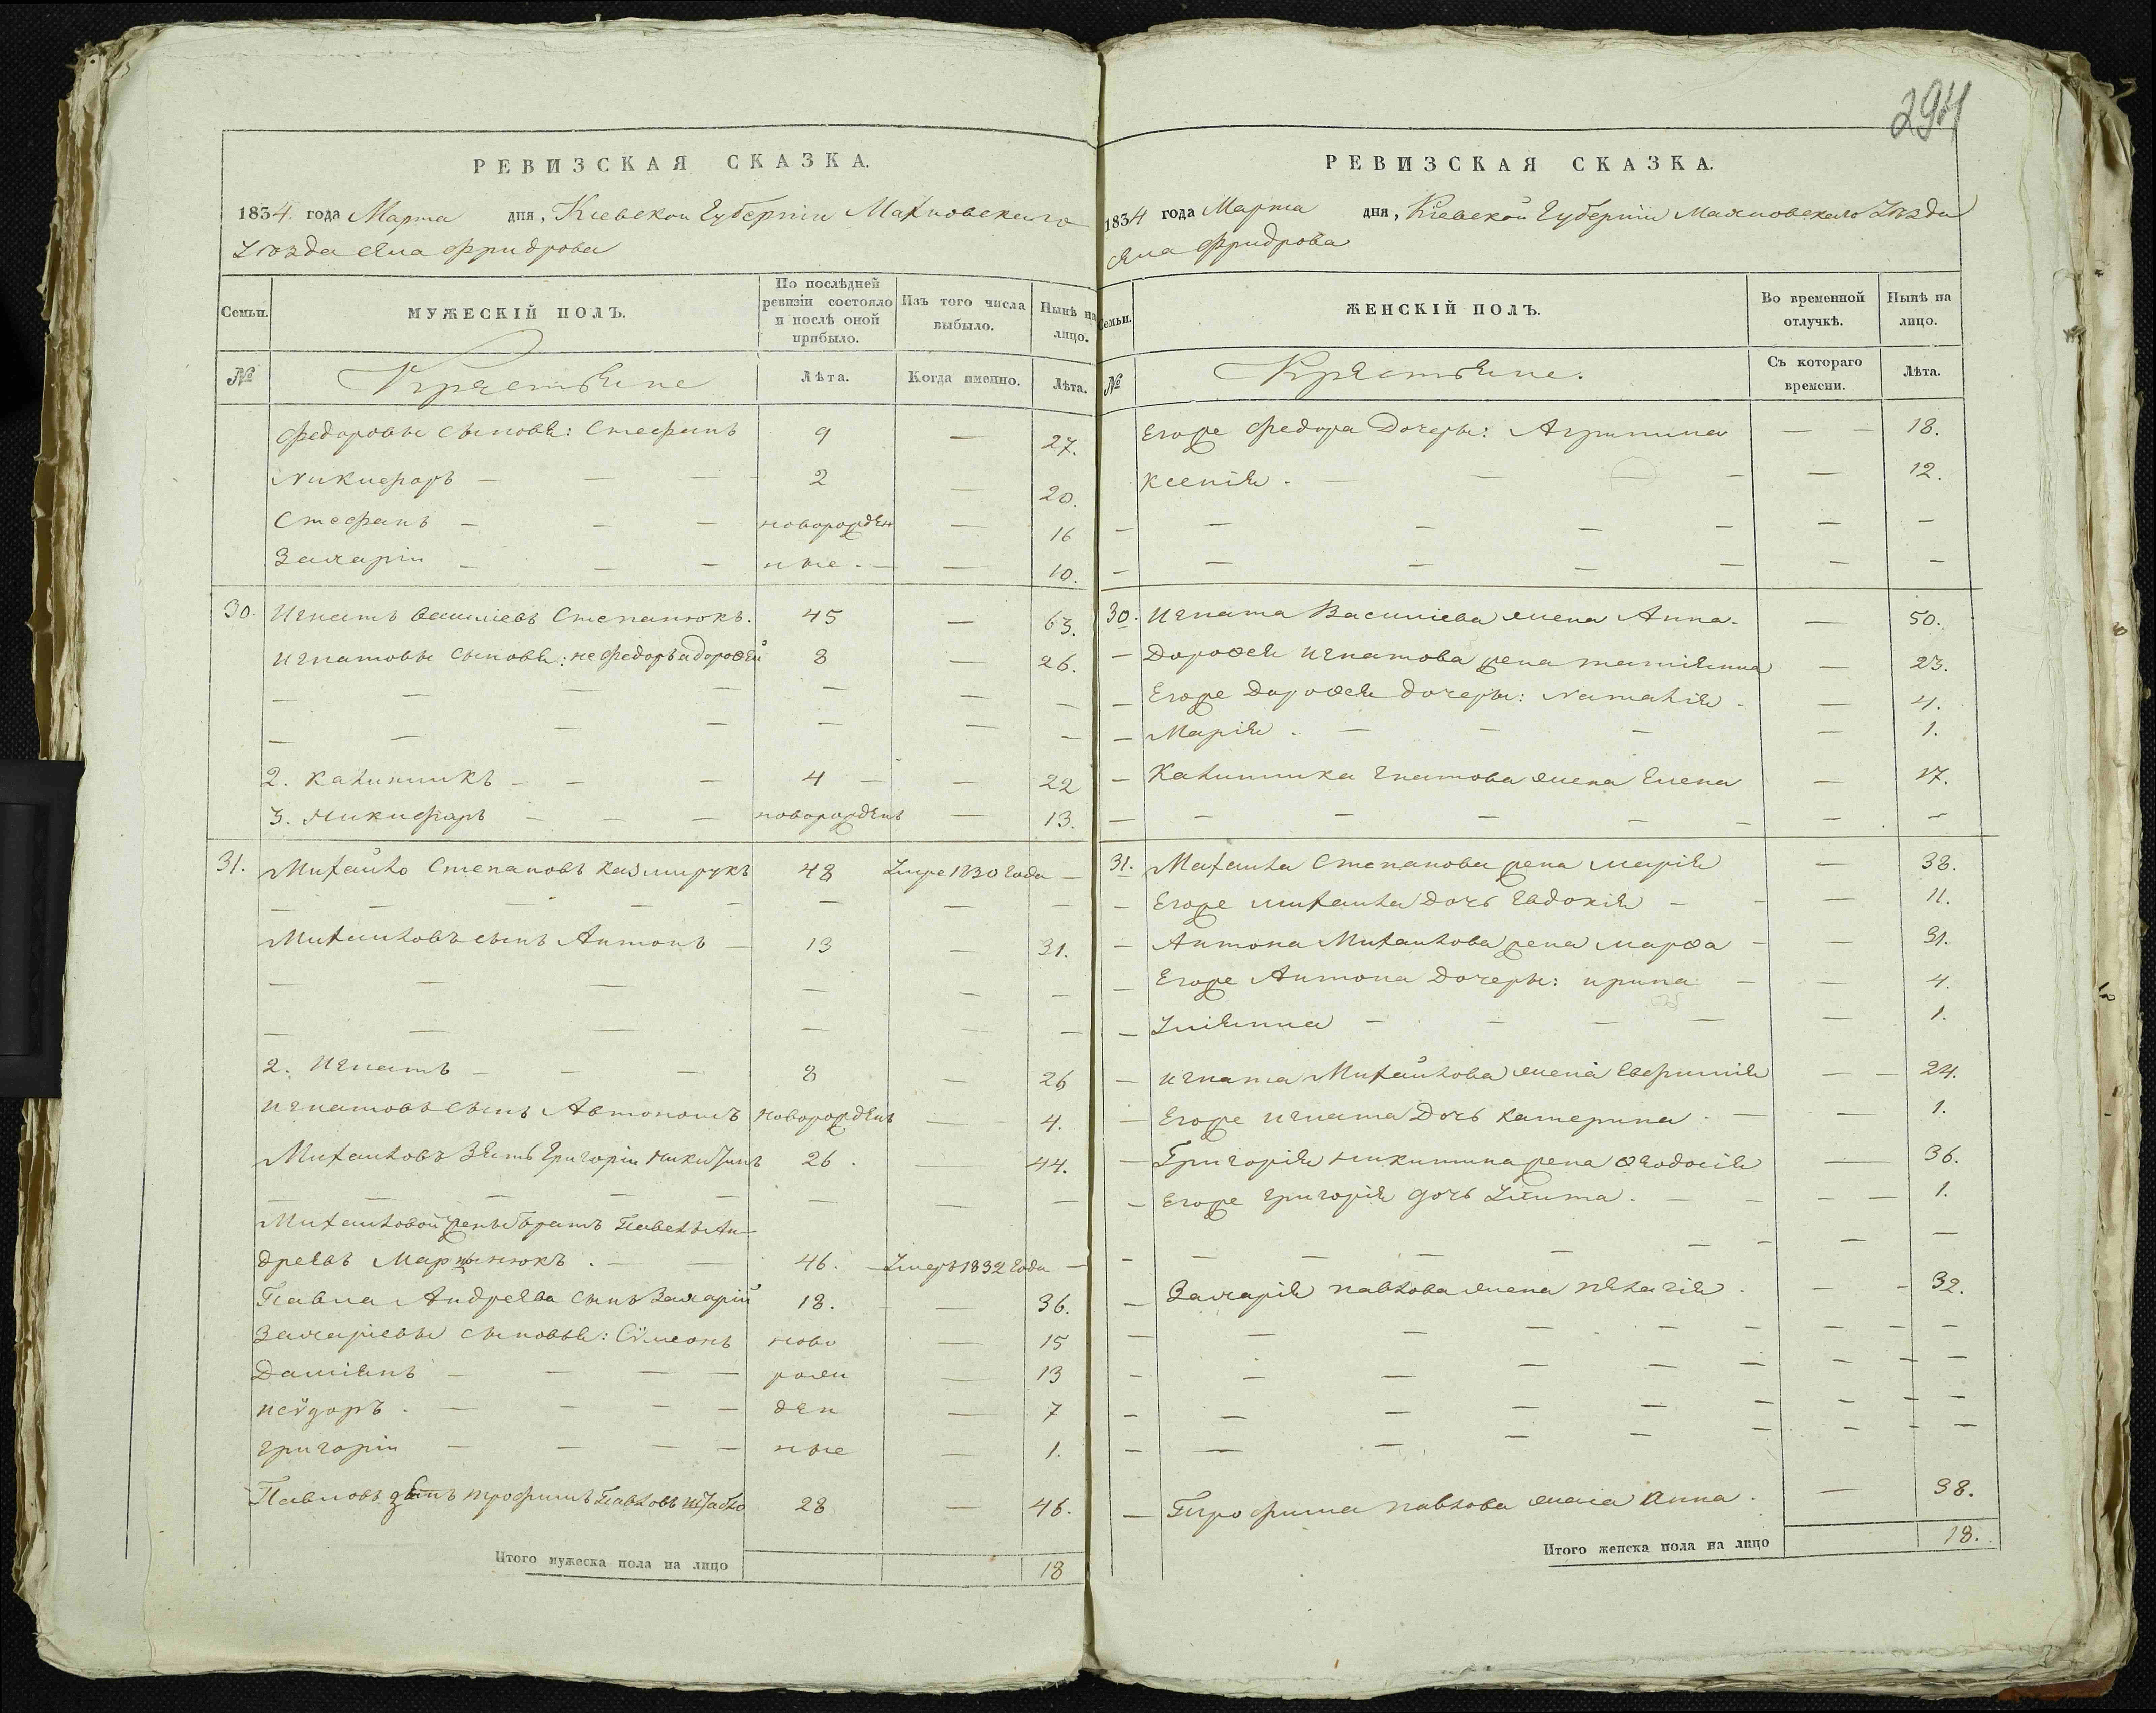 294
РЕВИЗСКАЯ СКАЗКА.
1834. года Марта дня, Кіевской Губерніи Махновскаго
Уѣзда села Фридрова
Семьи.
МУЖЕСКІЙ ПОЛЪ.
По послѣдней ревизіи состояло и послѣ оной прибыло.
Изъ того числа выбыло.
Нынѣ на лицо.
№
Крестьяне
Лѣта.
Когда именно.
Лѣта.
Федоровы сыновья: Стефанъ 9 — 27.
Никифоръ — — — 2 — 20.
Стефанъ — — — новорожден — 16
Захаріи — — — ные. — — 10.
30. Игнатъ Василіевъ Степанюкъ. 45 — 63.
Игнатовы сыновья: не Федоръ а Дорофей 8 — 26.
— — — — — — —
— — — — — — —
2. Калиникъ — — — 4 — — 22
3. Никифоръ — — — новорожденъ — 13.
31. Михайло Степановъ Казмирукъ 48 Умре 1830 года —
— — — — — — — —
Михайловъ сынъ Антонъ — 13 — 31.
— — — — — —
— — — — — —
2. Игнатъ — — — 8 — 26
Игнатовъ сынъ Автономъ новорожденъ — 4.
Михайловъ зять Григоріи Никитинъ 26. — 44.
— — — — — — — —
Михайловой жены братъ Павелъ Ан-
дреевъ Мартынюкъ. — — 46. Умеръ 1832 года —
Павла Андреева сынъ Захарій 18. — 36.
Захаріевы сыновья: Сѵмеонъ ново — 15
Даміянъ — — — — рожи — 13
Исѵдоръ. — — — — ден — 7
Григоріи — — — — ные — 1.
Павловъ зять Трофимъ Павловъ 28 — 46.
Итого мужеска пола на лицо 18
РЕВИЗСКАЯ СКАЗКА.
1834 года Марта дня, Кіевской Губерніи Махновскаго Уѣзда
села Фридрова
Семьи.
ЖЕНСКІЙ ПОЛЪ.
Во временной отлучкѣ.
Нынѣ на лицо.
№
Крестьяне.
Съ котораго времени.
Лѣта.
Егоже Федора Дочеры: Агрипина — — 18.
Ксенія. — — — — — 12.
— — — — — — —
— — — — — — —
30. Игната Василіева жена Анна. — 50.
— Дорофея Игнатова жена Татіянна — 23.
— Егоже Дорофея дочеры: Наталія. — 4.
— Марія. — — — — 1.
— Калиника Гнатова жена Елена — 17.
— — — — — — — —
31. Михаила Степанова жена Марія — 38.
— Егоже Михаила дочь Евдокія — — — 11.
— Антона Михаилова жена Марѳа — — 31.
— Егоже Антона Дочеры: Ирина — — 4.
— Уліянна — — — — — 1.
— Игната Михайлова жена Евфимія — — 24.
— Егоже Игната Дочь Катерина. — — 1.
— Григорія Никитина жена Ѳеодосія — 36.
— Егоже Григорія дочь Улита. — — — — 1.
— — — — — — — — —
— Захарія Павлова жена Пелагія. — — 32.
— — — — — — — — —
— — — — — — — — —
— — — — — — — — —
— — — — — — — — —
— Трофима Павлова жена Анна. — 38.
Итого женска пола на лицо 18.